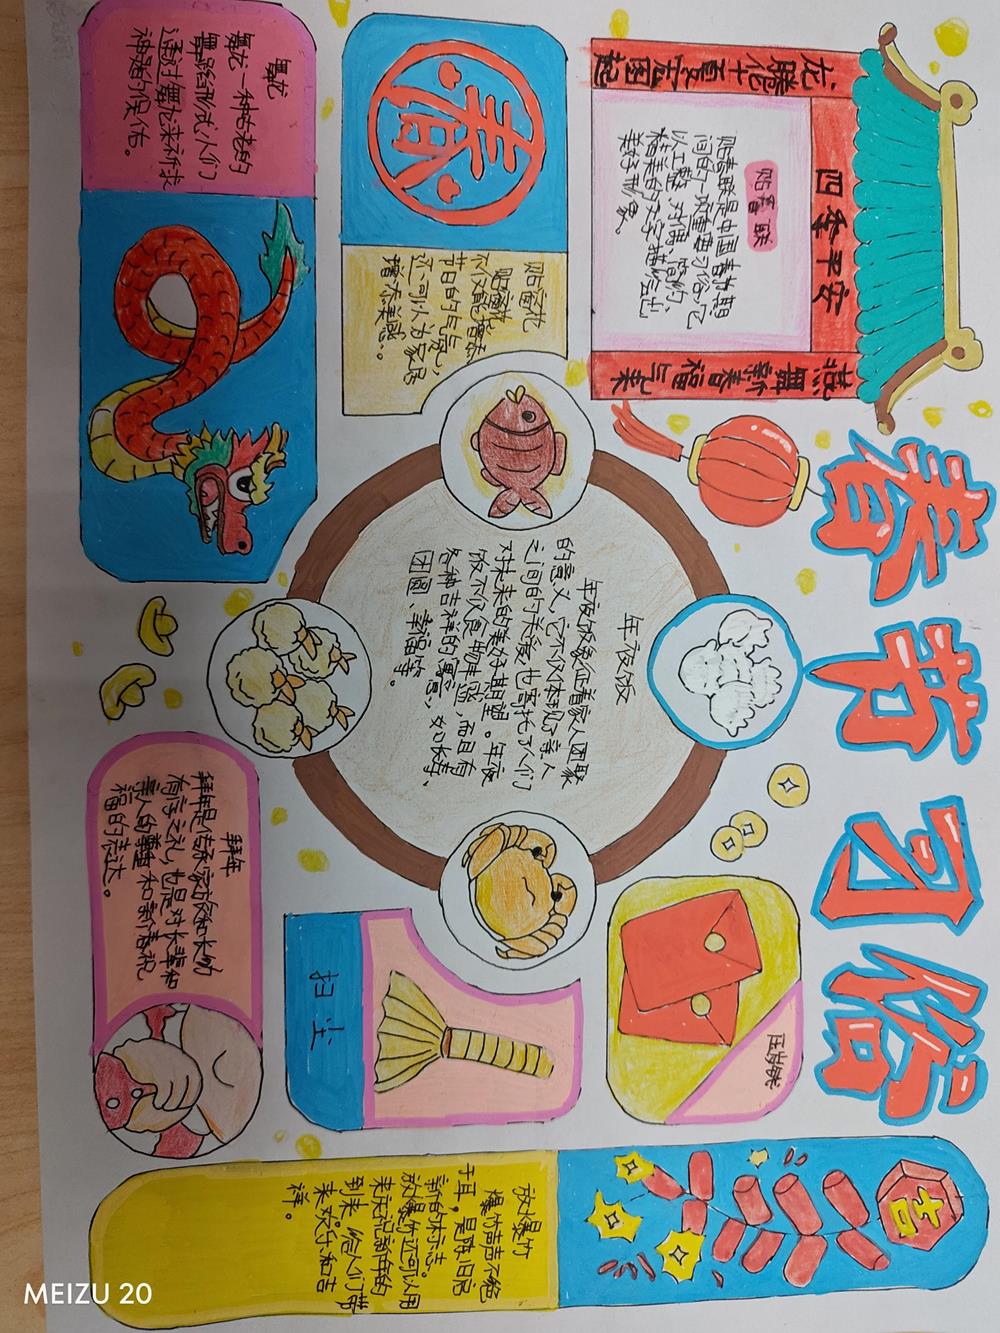 春节习俗
四季平安
龙腾华夏宏图起
燕舞新春福气来
贴春联
贴春联是中国春节期
间的一项重要习俗，它
以工整、对偶、简约、
精美的文字描绘出
美好形象。
春
贴窗花
贴窗花
不仅能增添
节日的气氛，
还可以为家居
增添美感。
舞龙
舞龙一种古老的
舞蹈形式，人们
通过舞龙来祈求
神龙的保佑。
年夜饭
年夜饭象征着家人团聚
的意义，它不仅体现了亲人
之间的关爱，也寄托了人们
对未来的美好期望。年夜
饭不仅食物丰盛，而且有
各种吉祥的寓意，如长寿、
团圆、幸福等。
压岁钱
扫尘
拜年
拜年是传承家族和长幼
有序之礼，也是对长辈和
亲人的尊重和新春祝
福的表达。
吉
放爆竹
爆竹声声不绝
于耳。是除旧迎
新的标志。
放爆竹还可以用
来庆祝新年的
到来，给人们带
来欢乐和吉
祥。
MEIZU 20